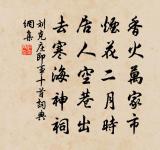 香火萬家市
煙花二月時
居人空巷出
去賽海神祠
劉克庄即事十首詞典
網集